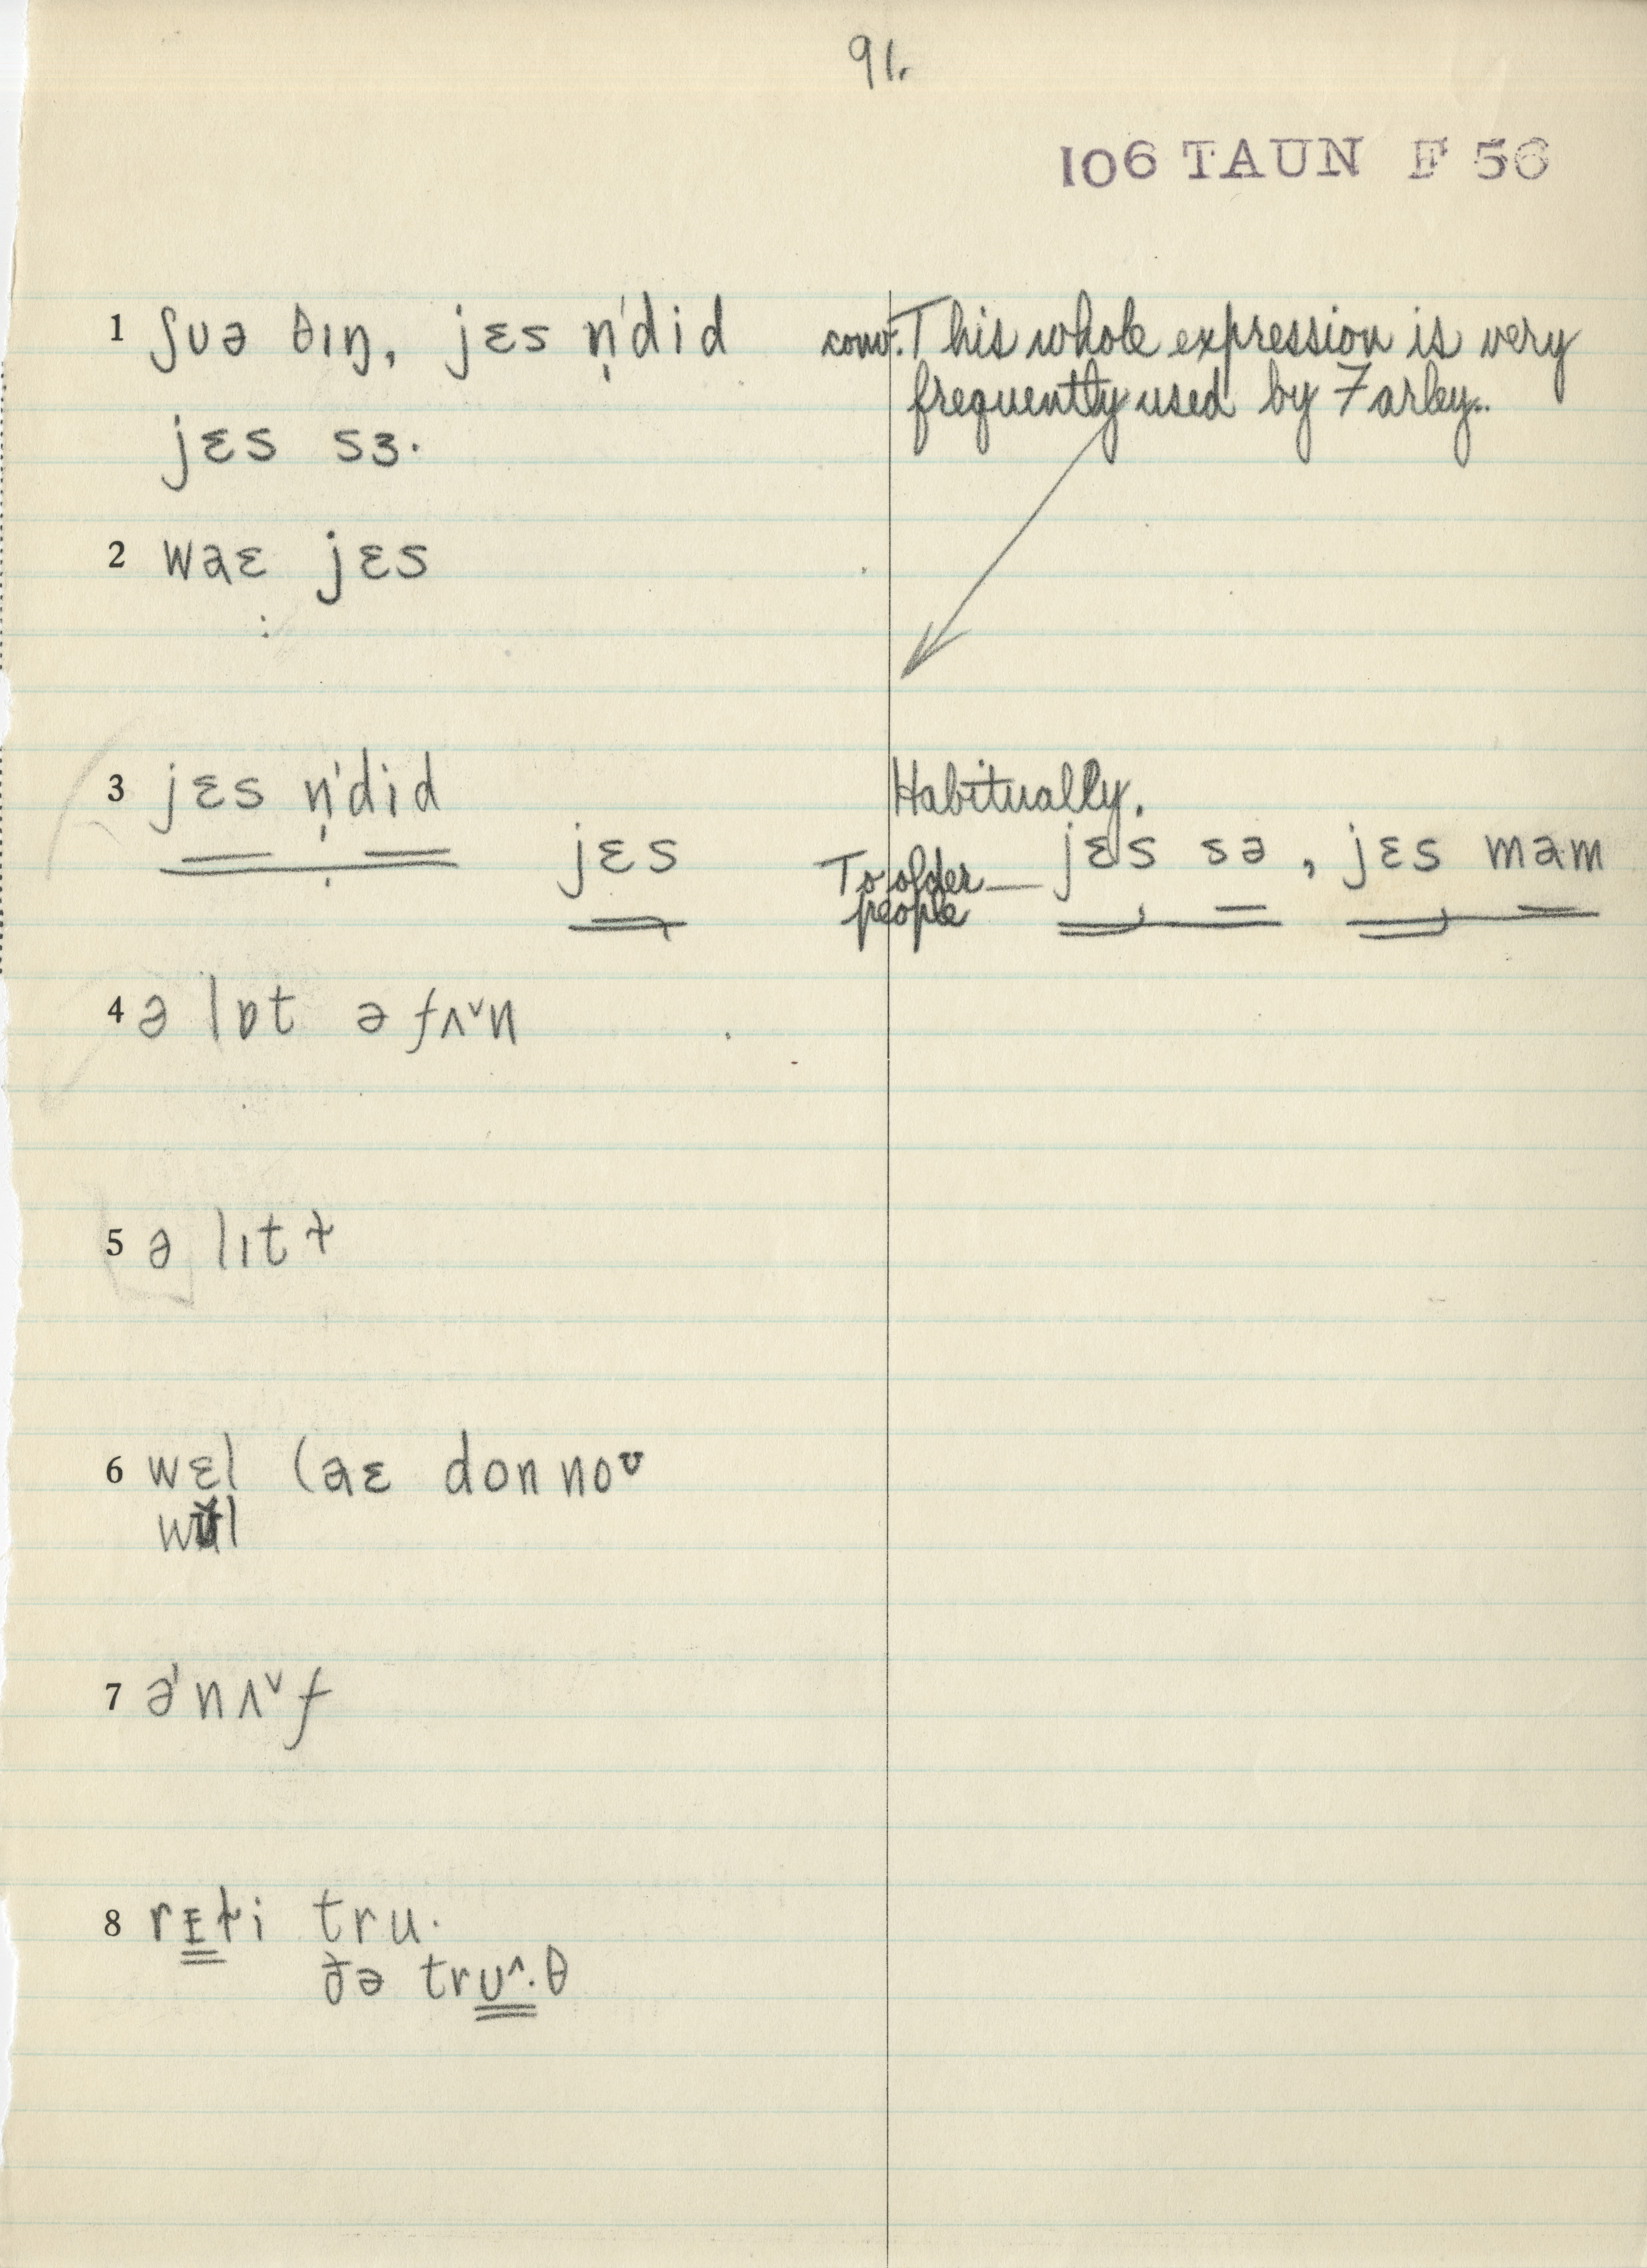 91.
106 TAUN F 56
1 ʃʊə θɪŋ, jɛs n̩ˈdid conv. This whole expression is very
frequently used by Farley.
jɛs sɜ·
2 waɛ jɛs
3 jɛs n̩ˈdid Habitually.
jɛs To older people — jɛs sə, jɛs mam
4 ə lɒt ə fʌˇn
5 ə lɪt ɫ
6 wɛl (aɛ don noᶷ
7 əˈnʌˇf
8 rɪɫi tru·
ðə trʊ^·θ